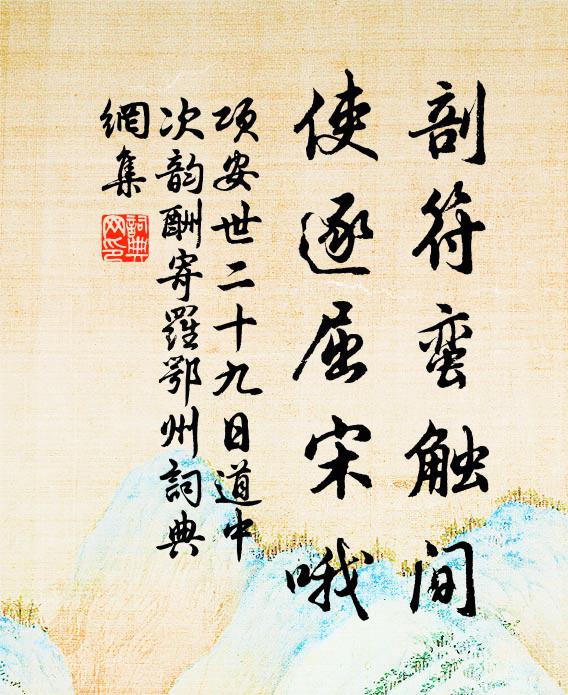 剖符蛮触间
使逐屈宋哦
项安世二十九日道中
次韵酬寄羅鄂州詞典
網集
詞典
网印